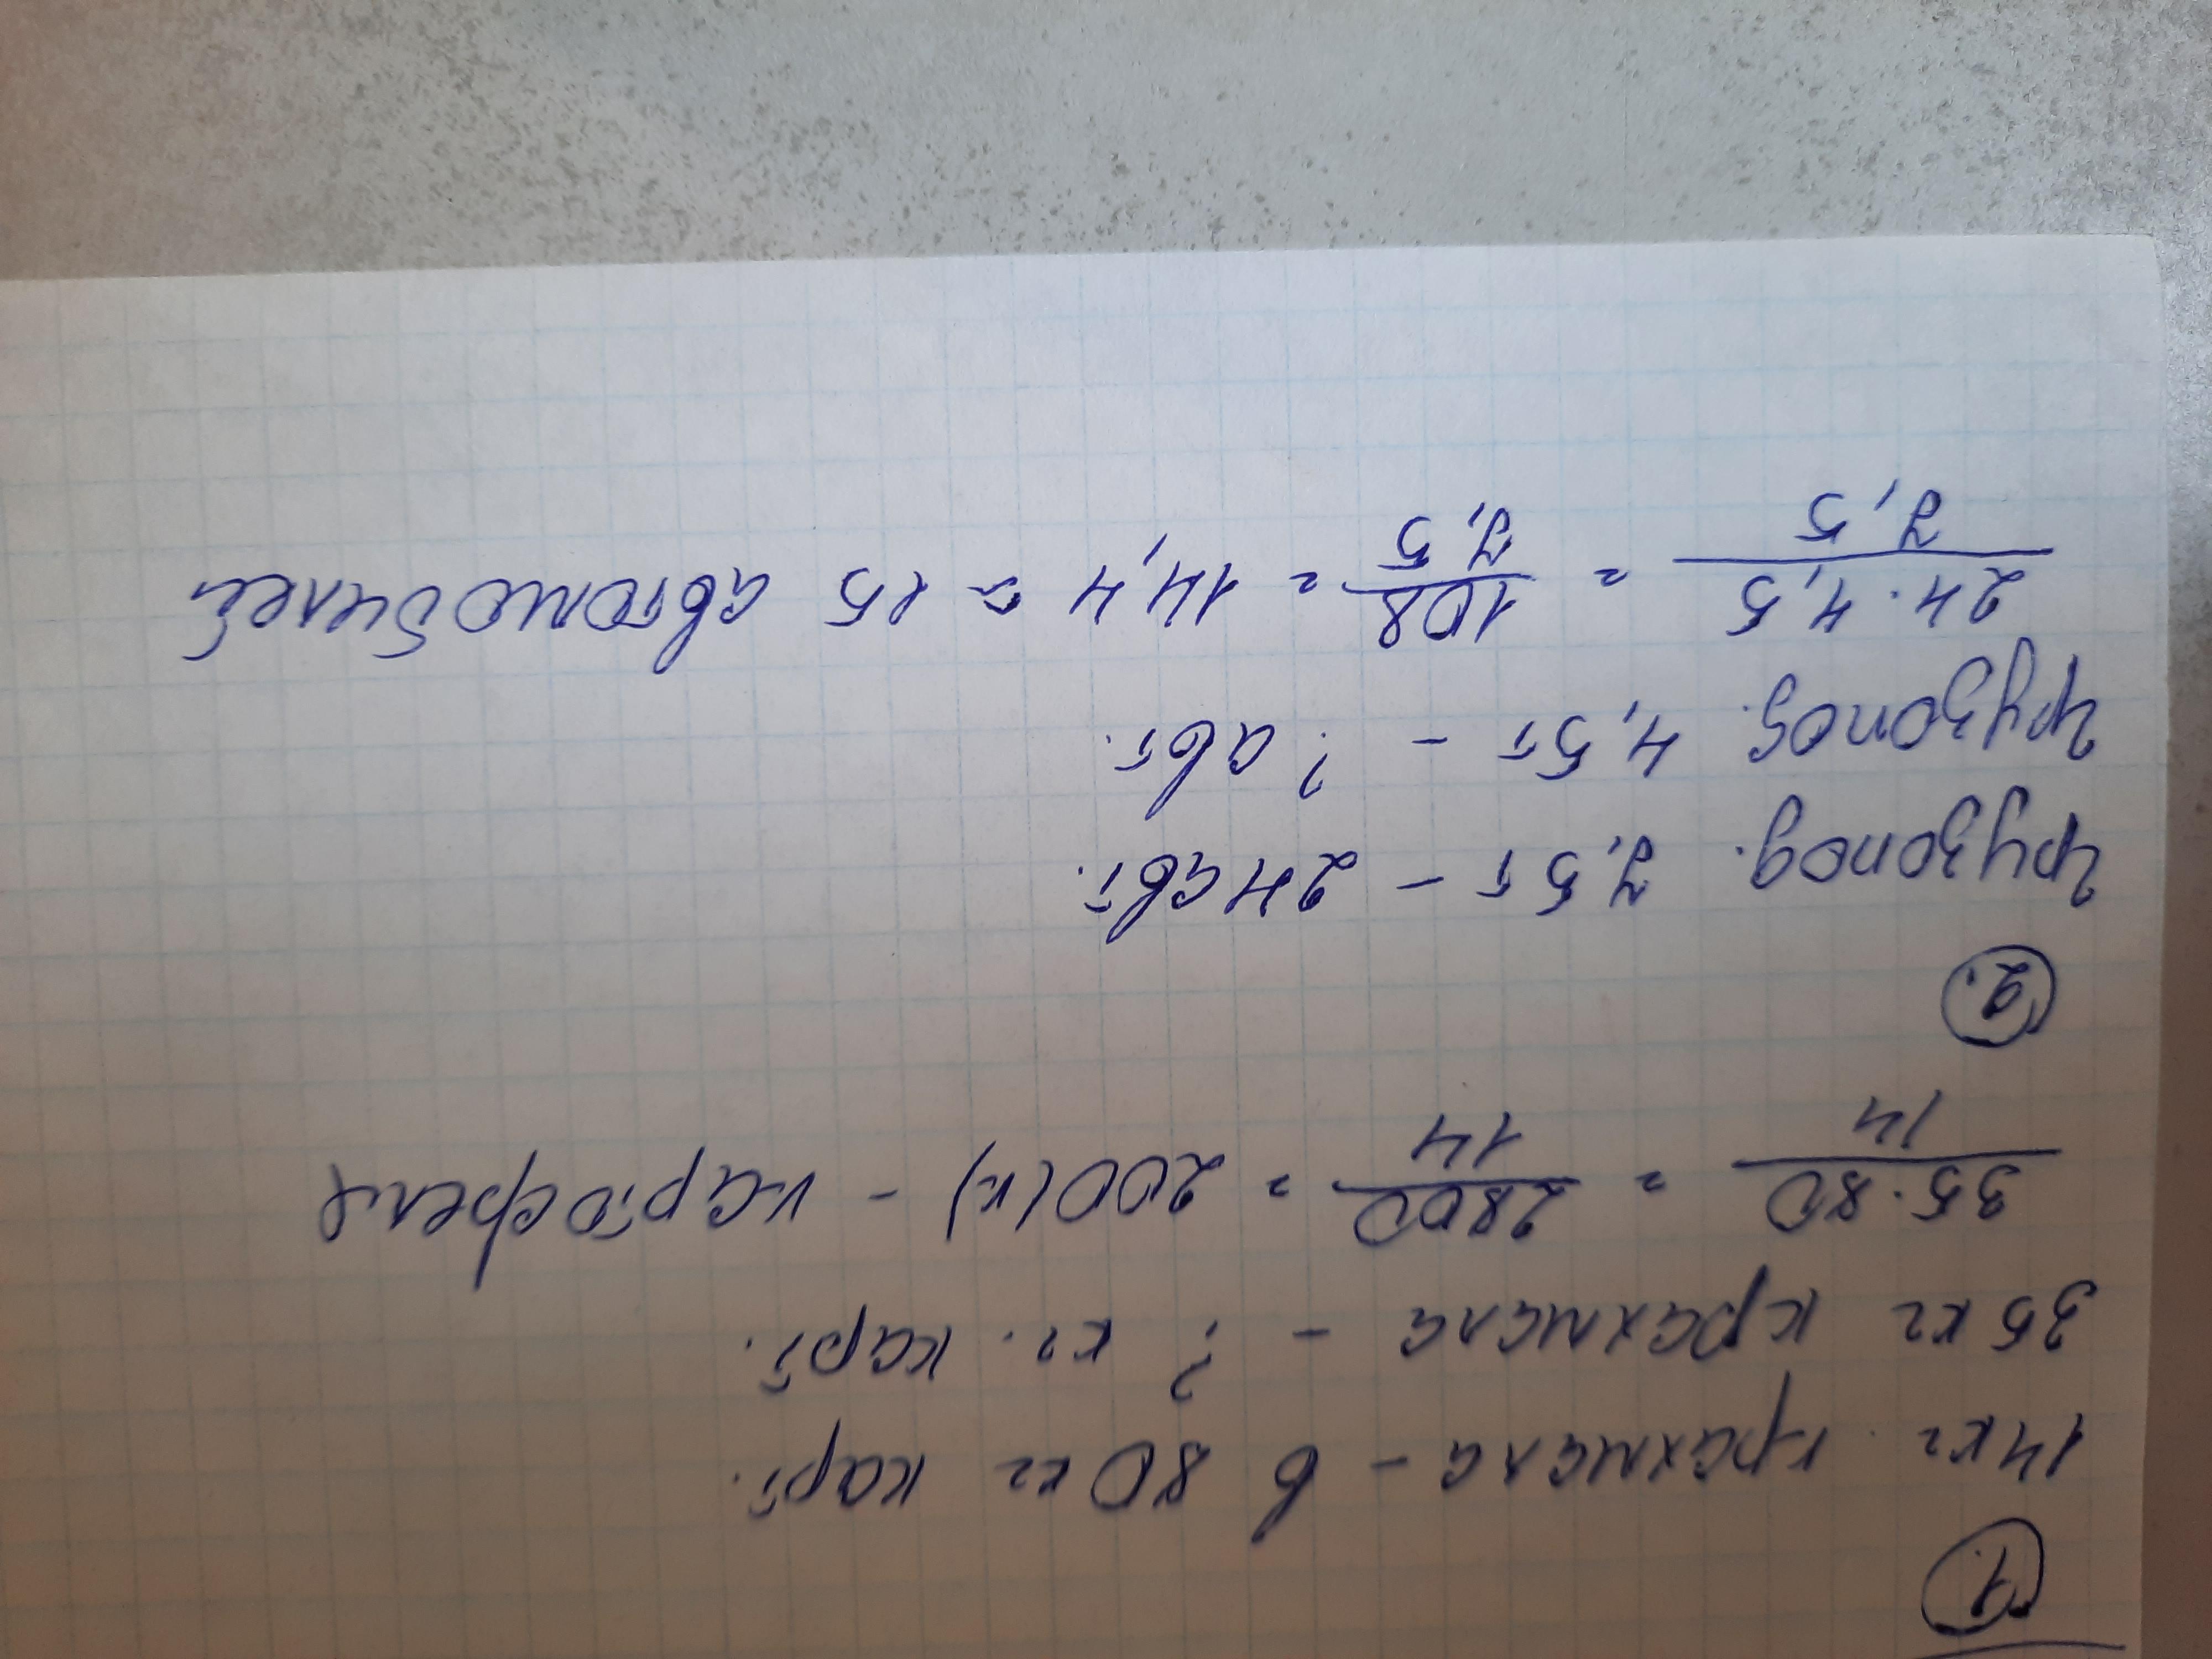 1.
14 кг крахмала - в 80 кг карт.
35 кг крахмала - ? кг. карт.
35·80/14 = 2800/14 = 200(к) - картофеля
2.
грузопод. 7,5т - 24 авт.
грузопод. 4,5т - ? авт.
24·4,5/7,5 = 108/7,5 = 14,4 ≈ 15 автомобилей